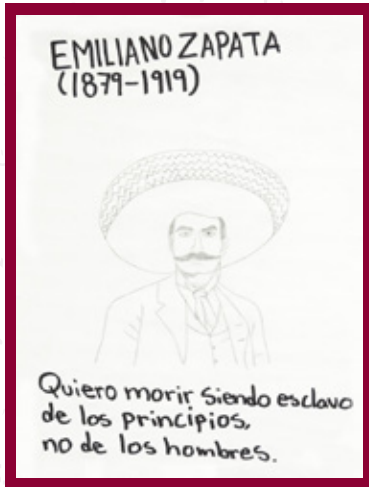 EMILIANO ZAPATA
(1879-1919)
Quiero morir siendo esclavo
de los principios,
no de los hombres.